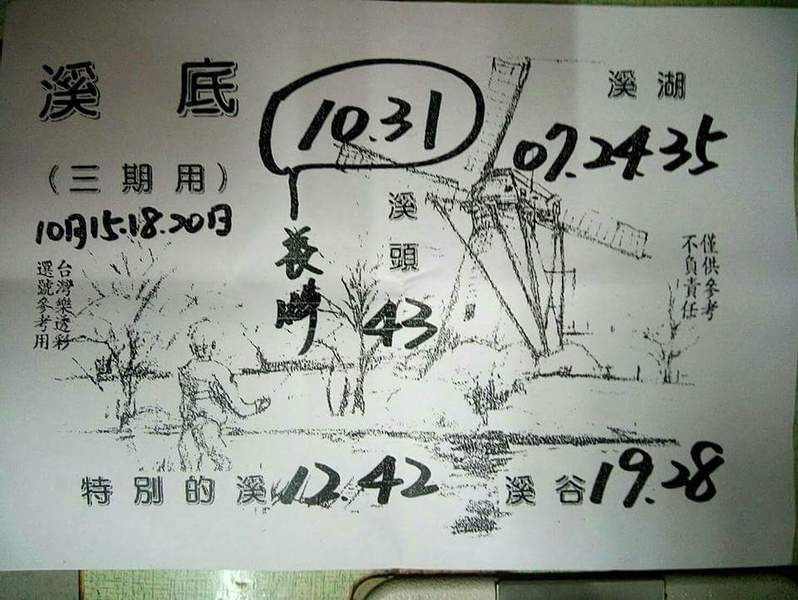 溪底
10.31
溪湖
07.24.35
(三期用)
10月15.18.20日
溪頭
43
長崎
僅供參考
不負責任
台灣樂透彩
選號參考用
特別的溪 12.42
溪谷 19.28